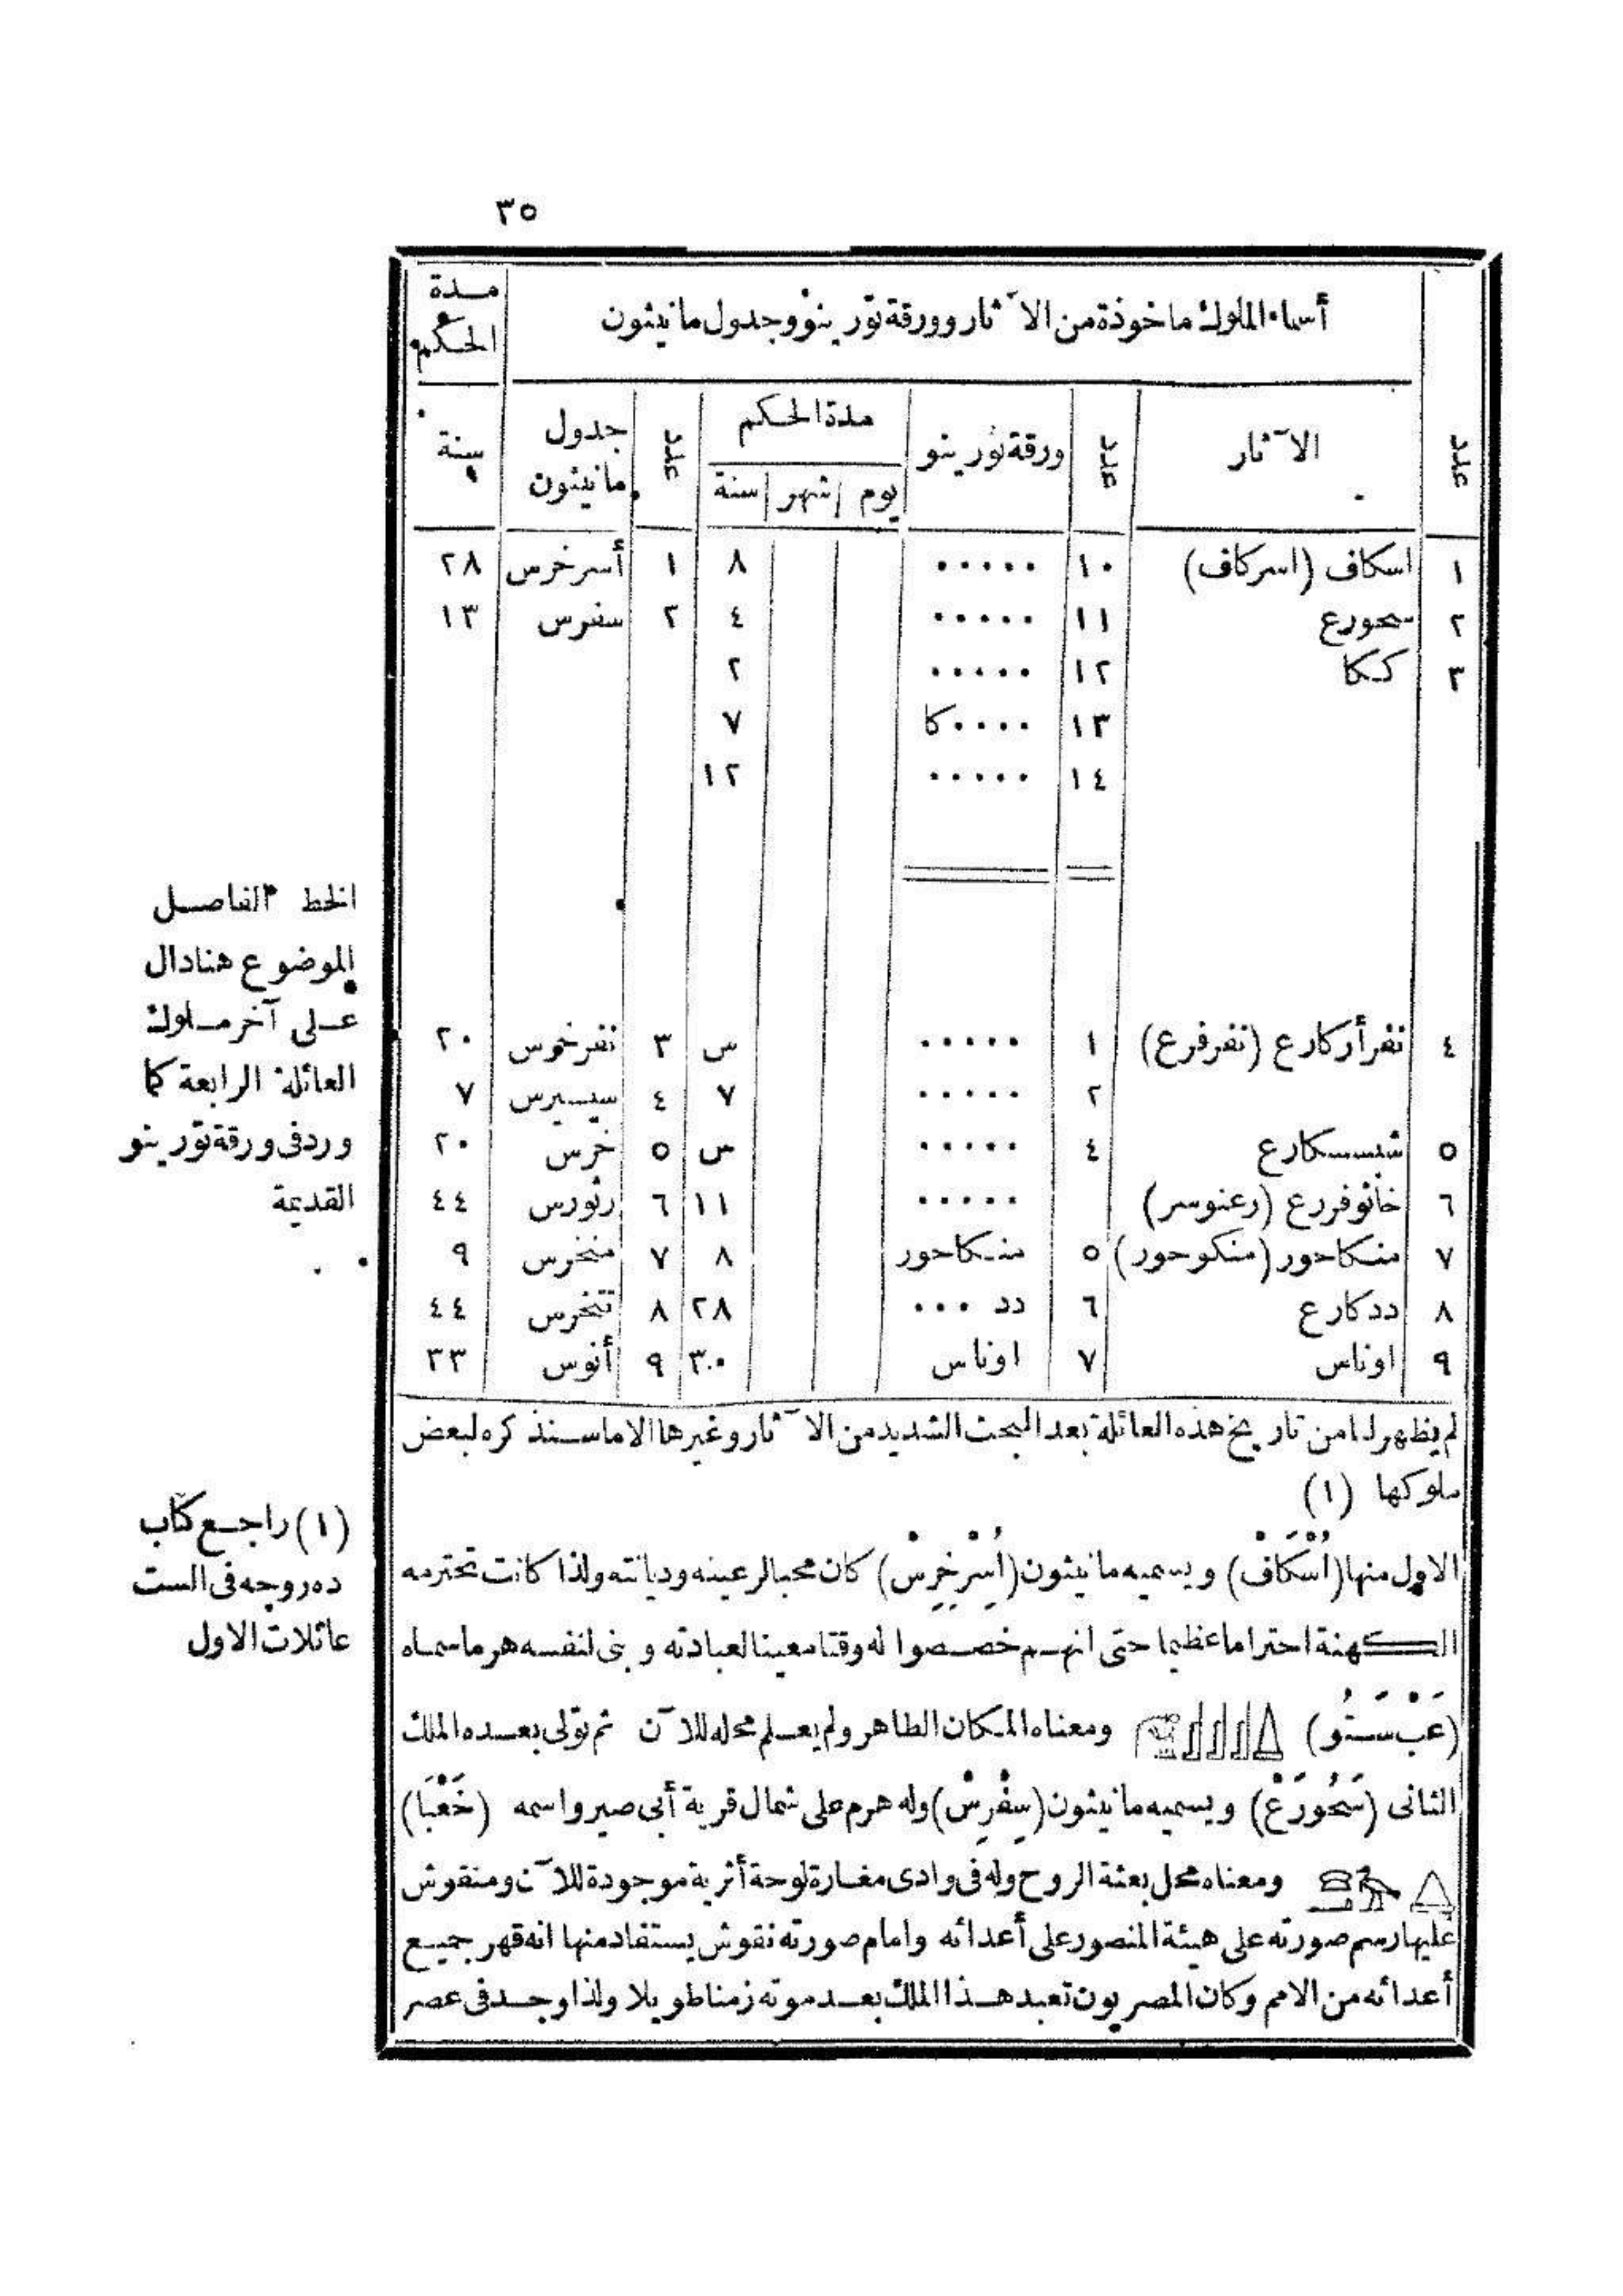 ٣٥
أسماء الملوك ماخوذة من الآثار وورقة تورينو وجدول مانيثون
مدة الحكم
عدد | الآثار | عدد | ورقة تورينو | مدة الحكم | عدد | جدول مانيثون | سنة
يوم | شهر | سنة
١ | اسكاف (اسركاف) | ١٠ | ..... | ٨ | ١ | أسرخرس | ٢٨
٢ | سحورع | ١١ | ..... | ٤ | ٢ | سفرس | ١٣
٣ | ككا | ١٢ | ..... | ٢
١٣ | ....كا | ٧
١٤ | ..... | ١٢
٤ | نفرأركارع (نفرفرع) | ١ | ..... | س | ٣ | نفرخوس | ٢٠
٢ | ..... | ٧ | ٤ | سيسيرس | ٧
٥ | شبسسكارع | ٤ | ..... | س | ٥ | خرس | ٢٠
٦ | خانوفررع (رعنوسر) | ..... | ١١ | ٦ | رثورس | ٤٤
٧ | منكاحور (منكوحور) | ٥ | منكاحور | ٨ | ٧ | منخرس | ٩
٨ | ددكارع | ٦ | دد ... | ٢٨ | ٨ | تنخرس | ٤٤
٩ | اوناس | ٧ | اوناس | ٣٠ | ٩ | أنوس | ٣٣
الخط الفاصل
الموضوع هنا دال
على آخر ملوك
العائلة الرابعة كما
ورد فى ورقة تورينو
القديمة
لم يظهر لنا من تاريخ هذه العائلة بعد البحث الشديد من الآثار وغيرها الا ما سنذكره لبعض
ملوكها (١)
الاول منها (اُسْكَافْ) ويسميه مانيثون (اُسِرْخِرِسْ) كان محبا لرعيته وديانته ولذا كانت تحترمه
الكهنة احتراما عظيما حتى انهم خصصوا له وقتا معينا لعبادته وبنى لنفسه هرما سماه
(عَبْ سَتُو) ومعناه المكان الطاهر ولم يعلم محله للآن ثم تولى بعده الملك
الثانى (سَحُورَعْ) ويسميه مانيثون (سِفْرِسْ) وله هرم على شمال قرية أبى صير واسمه (خَعْبَا)
ومعناه محل بعثة الروح وله فى وادى مغارة لوحة أثرية موجودة للآن ومنقوش
عليها رسم صورته على هيئة المنصور على أعدائه وامام صورته نقوش يستفاد منها انه قهر جميع
أعدائه من الامم وكان المصريون تعبد هذا الملك بعد موته زمنا طويلا ولذا وجد فى عصر
(١) راجع كتاب
ده روجه فى الست
عائلات الاول